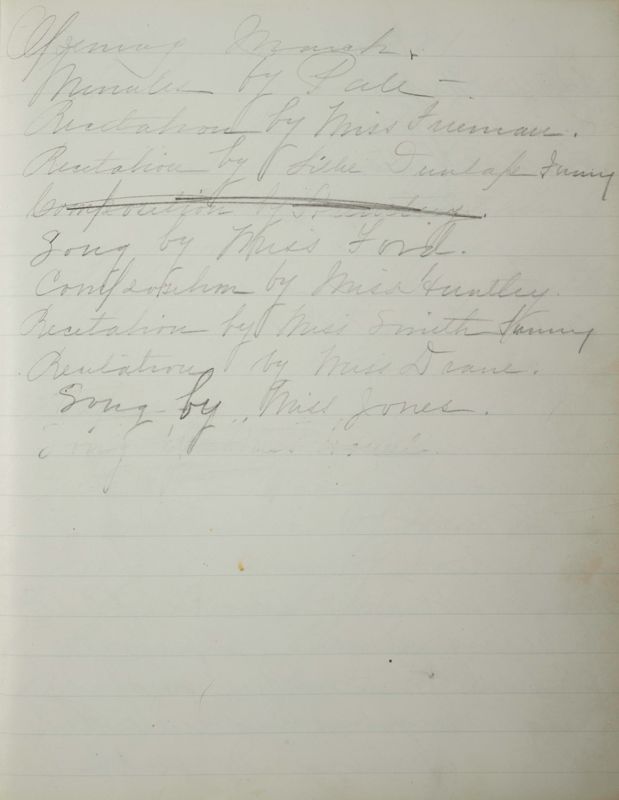 Opening March.
Minutes by Pale –
Recitation by Miss Freeman.
Recitation by Dunlap Funny
Composition by
Song by Miss Ford.
Composition by Miss Huntley.
Recitation by Miss Smith Funny
Recitation by Miss Deane.
Song by Miss Jones.
Song